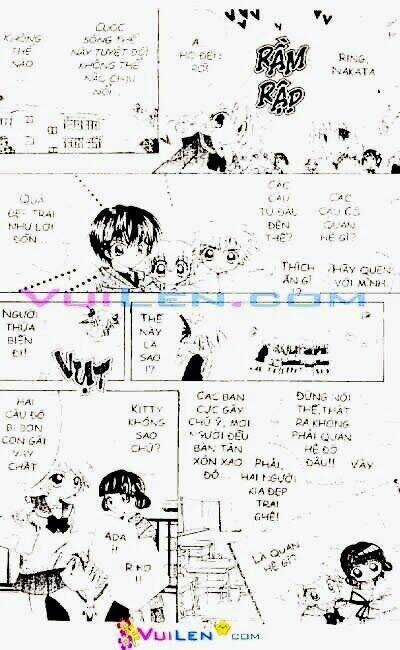 KHÔNG
THỂ
NÀO
CUỘC
SỐNG THẾ
NÀY TUYỆT ĐỐI
KHÔNG THỂ
NÀO CHỊU
NỔI
A
HỌ ĐẾN
RỒI
RẦM
RẬP
RING,
NAKATA
QUẢ
ĐẸP TRAI
NHƯ LỜI
ĐỒN
CÁC
CẬU
TỪ ĐÂU
ĐẾN
THẾ?
CÁC
CẬU CÓ
QUAN
HỆ GÌ?
THÍCH
ĂN GÌ
HÃY QUEN
VỚI MÌNH
VuiLen.com
NGƯỜI
THỪA
BIẾN
ĐI!
VỤT
THẾ
NÀY
LÀ
SAO
!?
HAI
CẬU ĐÓ
BỊ BỌN
CON GÁI
VÂY
CHẶT
KITTY
KHÔNG
SAO
CHỨ?
ADA
!!
RIKO
!!
CÁC BẠN
CỰC GÂY
CHÚ Ý, MỌI
NGƯỜI ĐỀU
BÀN TÁN
XÔN XAO
ĐÓ
ĐỪNG NÓI
THẾ, THẬT
RA KHÔNG
PHẢI QUAN
HỆ ĐÓ
ĐÂU!!
VẬY
PHẢI
HAI NGƯỜI
KIA ĐẸP
TRAI
GHÊ!
LÀ QUAN
HỆ GÌ?
VuiLen.com